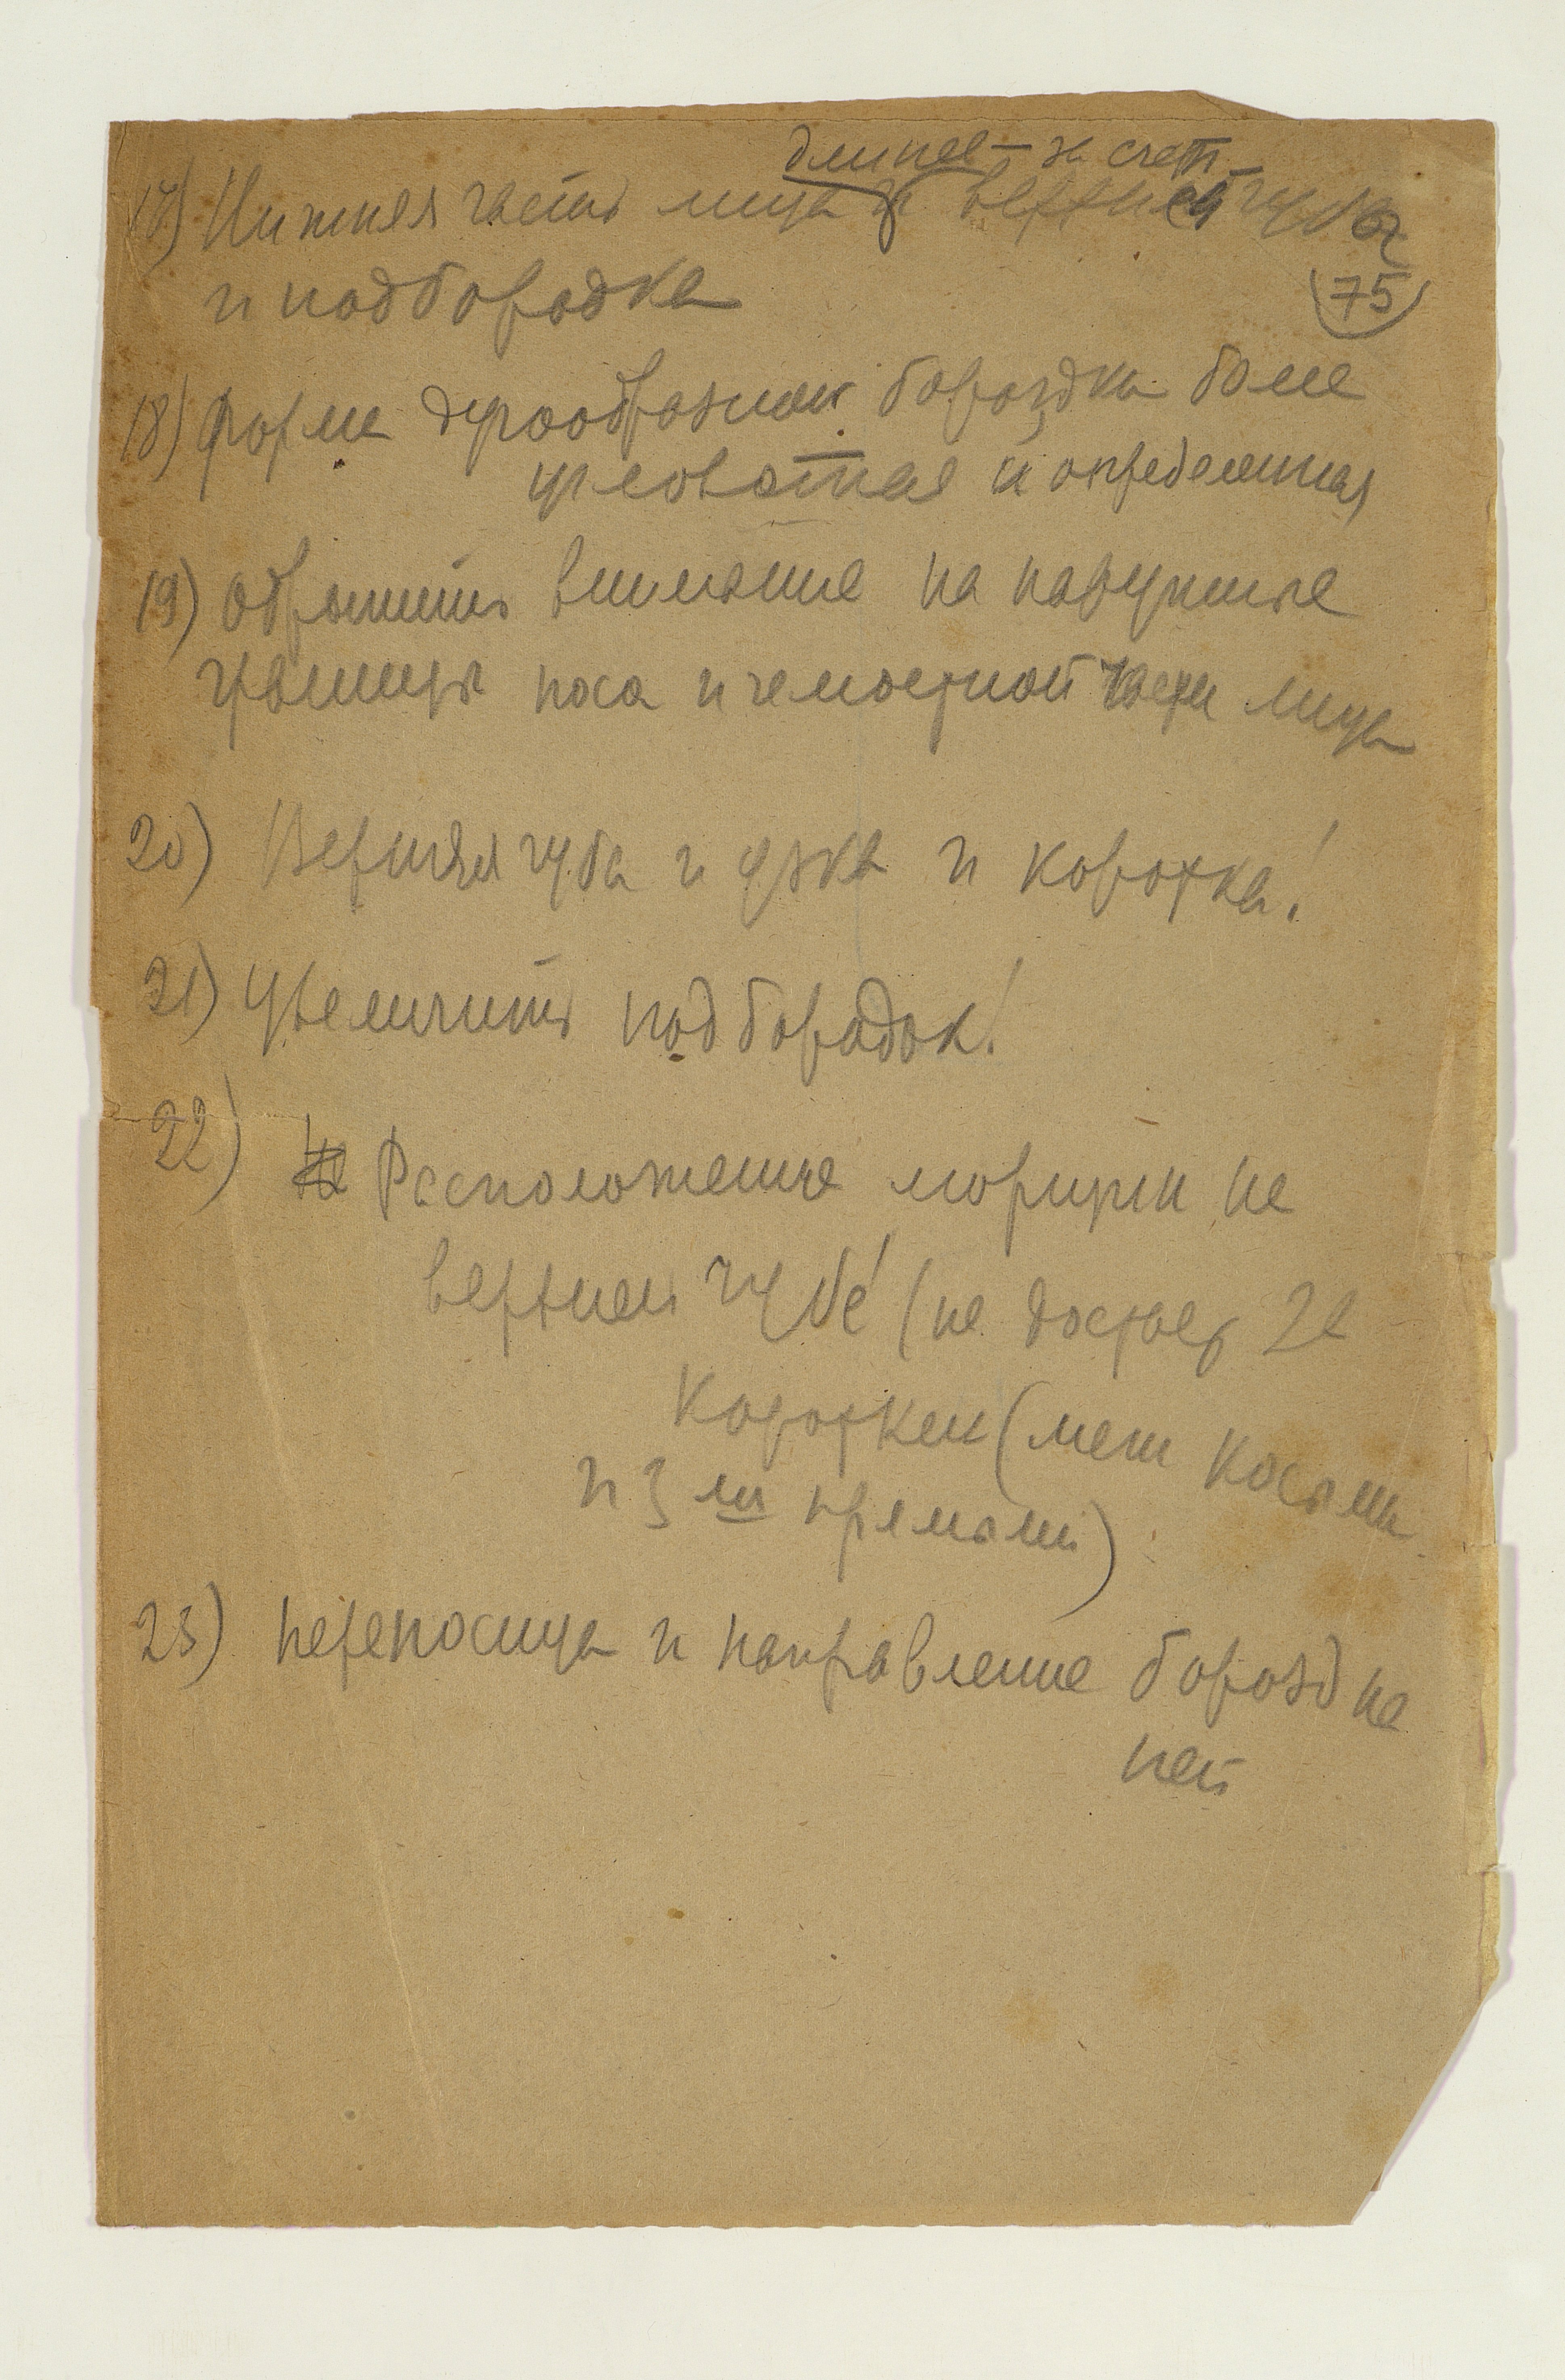 длиннее — за счет
17) Нижняя часть лица верхней губы
и подбородка
75
18) Форма дугообразной бороздки более
угловатая и определенная
19) Обратить внимание на наружные
границы носа и челюстной части лица
20) Верхняя губа и узка и коротка!
21) Увеличить подбородок!
22) Расположение морщин на
верхней губе (не достает 2х
коротких (меж косыми
и 3 мя прямыми)
23) переносица и направление борозд не